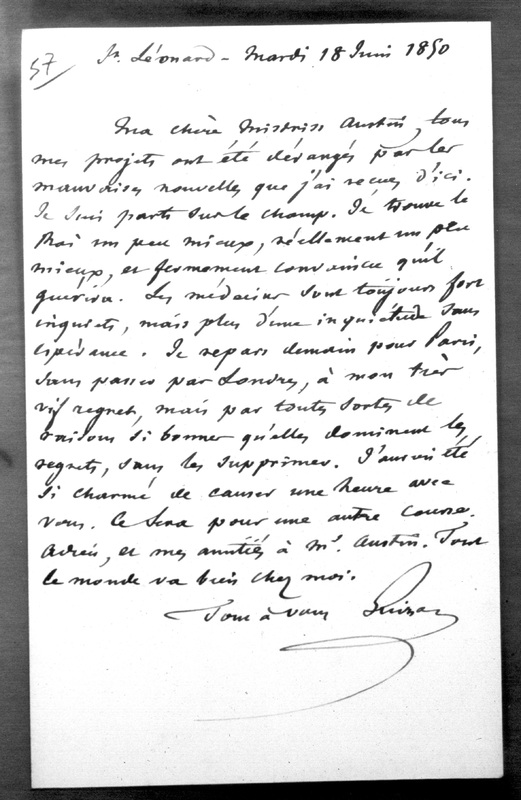 57
St. Léonard - Mardi 18 Juin 1850
Ma chère Mistriss Austin, tous
mes projets ont été dérangés par les
mauvaises nouvelles que j'ai reçues d'ici.
Je suis parti sur le champ. J'ai trouvé le
Roi un peu mieux, réellement un peu
mieux, et fermement convaincu qu'il
guérira. Les médecins sont toujours fort
inquiets, mais plus d'une inquiétude sans
espérance. Je repars demain pour Paris,
sans passer par Londres, à mon très
vif regret, mais par toutes sortes de
raisons si bonnes qu'elles dominent les
regrets, sans les supprimer. J'aurois été
si charmé de causer une heure avec
vous. Ce sera pour une autre course.
Adieu, et mes amitiés à Mr. Austin. Tout
le monde va bien chez moi.
Tout à vous Guizot